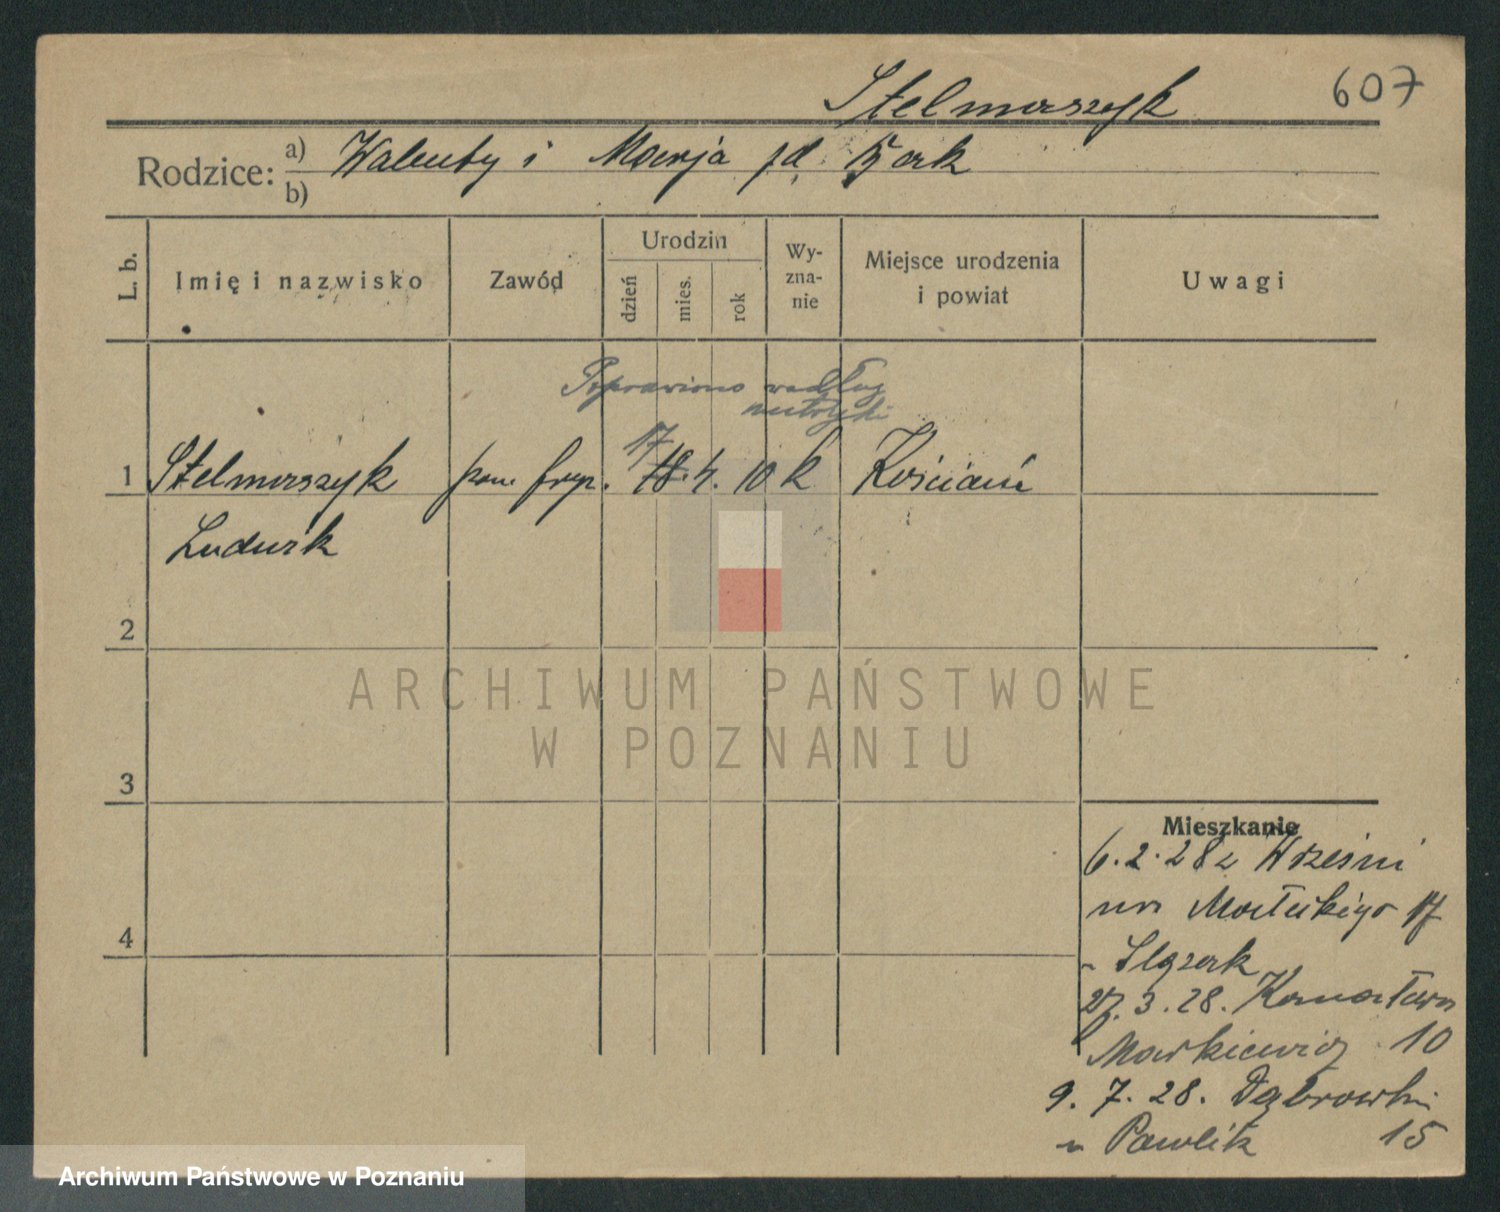 Stelmaszyk 607
Rodzice: a) Walenty i Marja zd. Bąk
b)
L. b. Imię i nazwisko Zawód Urodzin dzień mies. rok Wy-zna-nie Miejsce urodzenia i powiat Uwagi
Poprawiono według
metryki
17
1 Stelmaszyk pom. fryz. 18. 4. 10 k Kościań
Ludwik
2
3
4
Mieszkanie
6.2.28 z Wrześni
na Małeckiego 17
Ślązak
27.3.28. Kanałowa
Markiewicz 10
9. 7. 28. Dąbrowski
Pawlik 15
ARCHIWUM PAŃSTWOWE
W POZNANIU
Archiwum Państwowe w Poznaniu